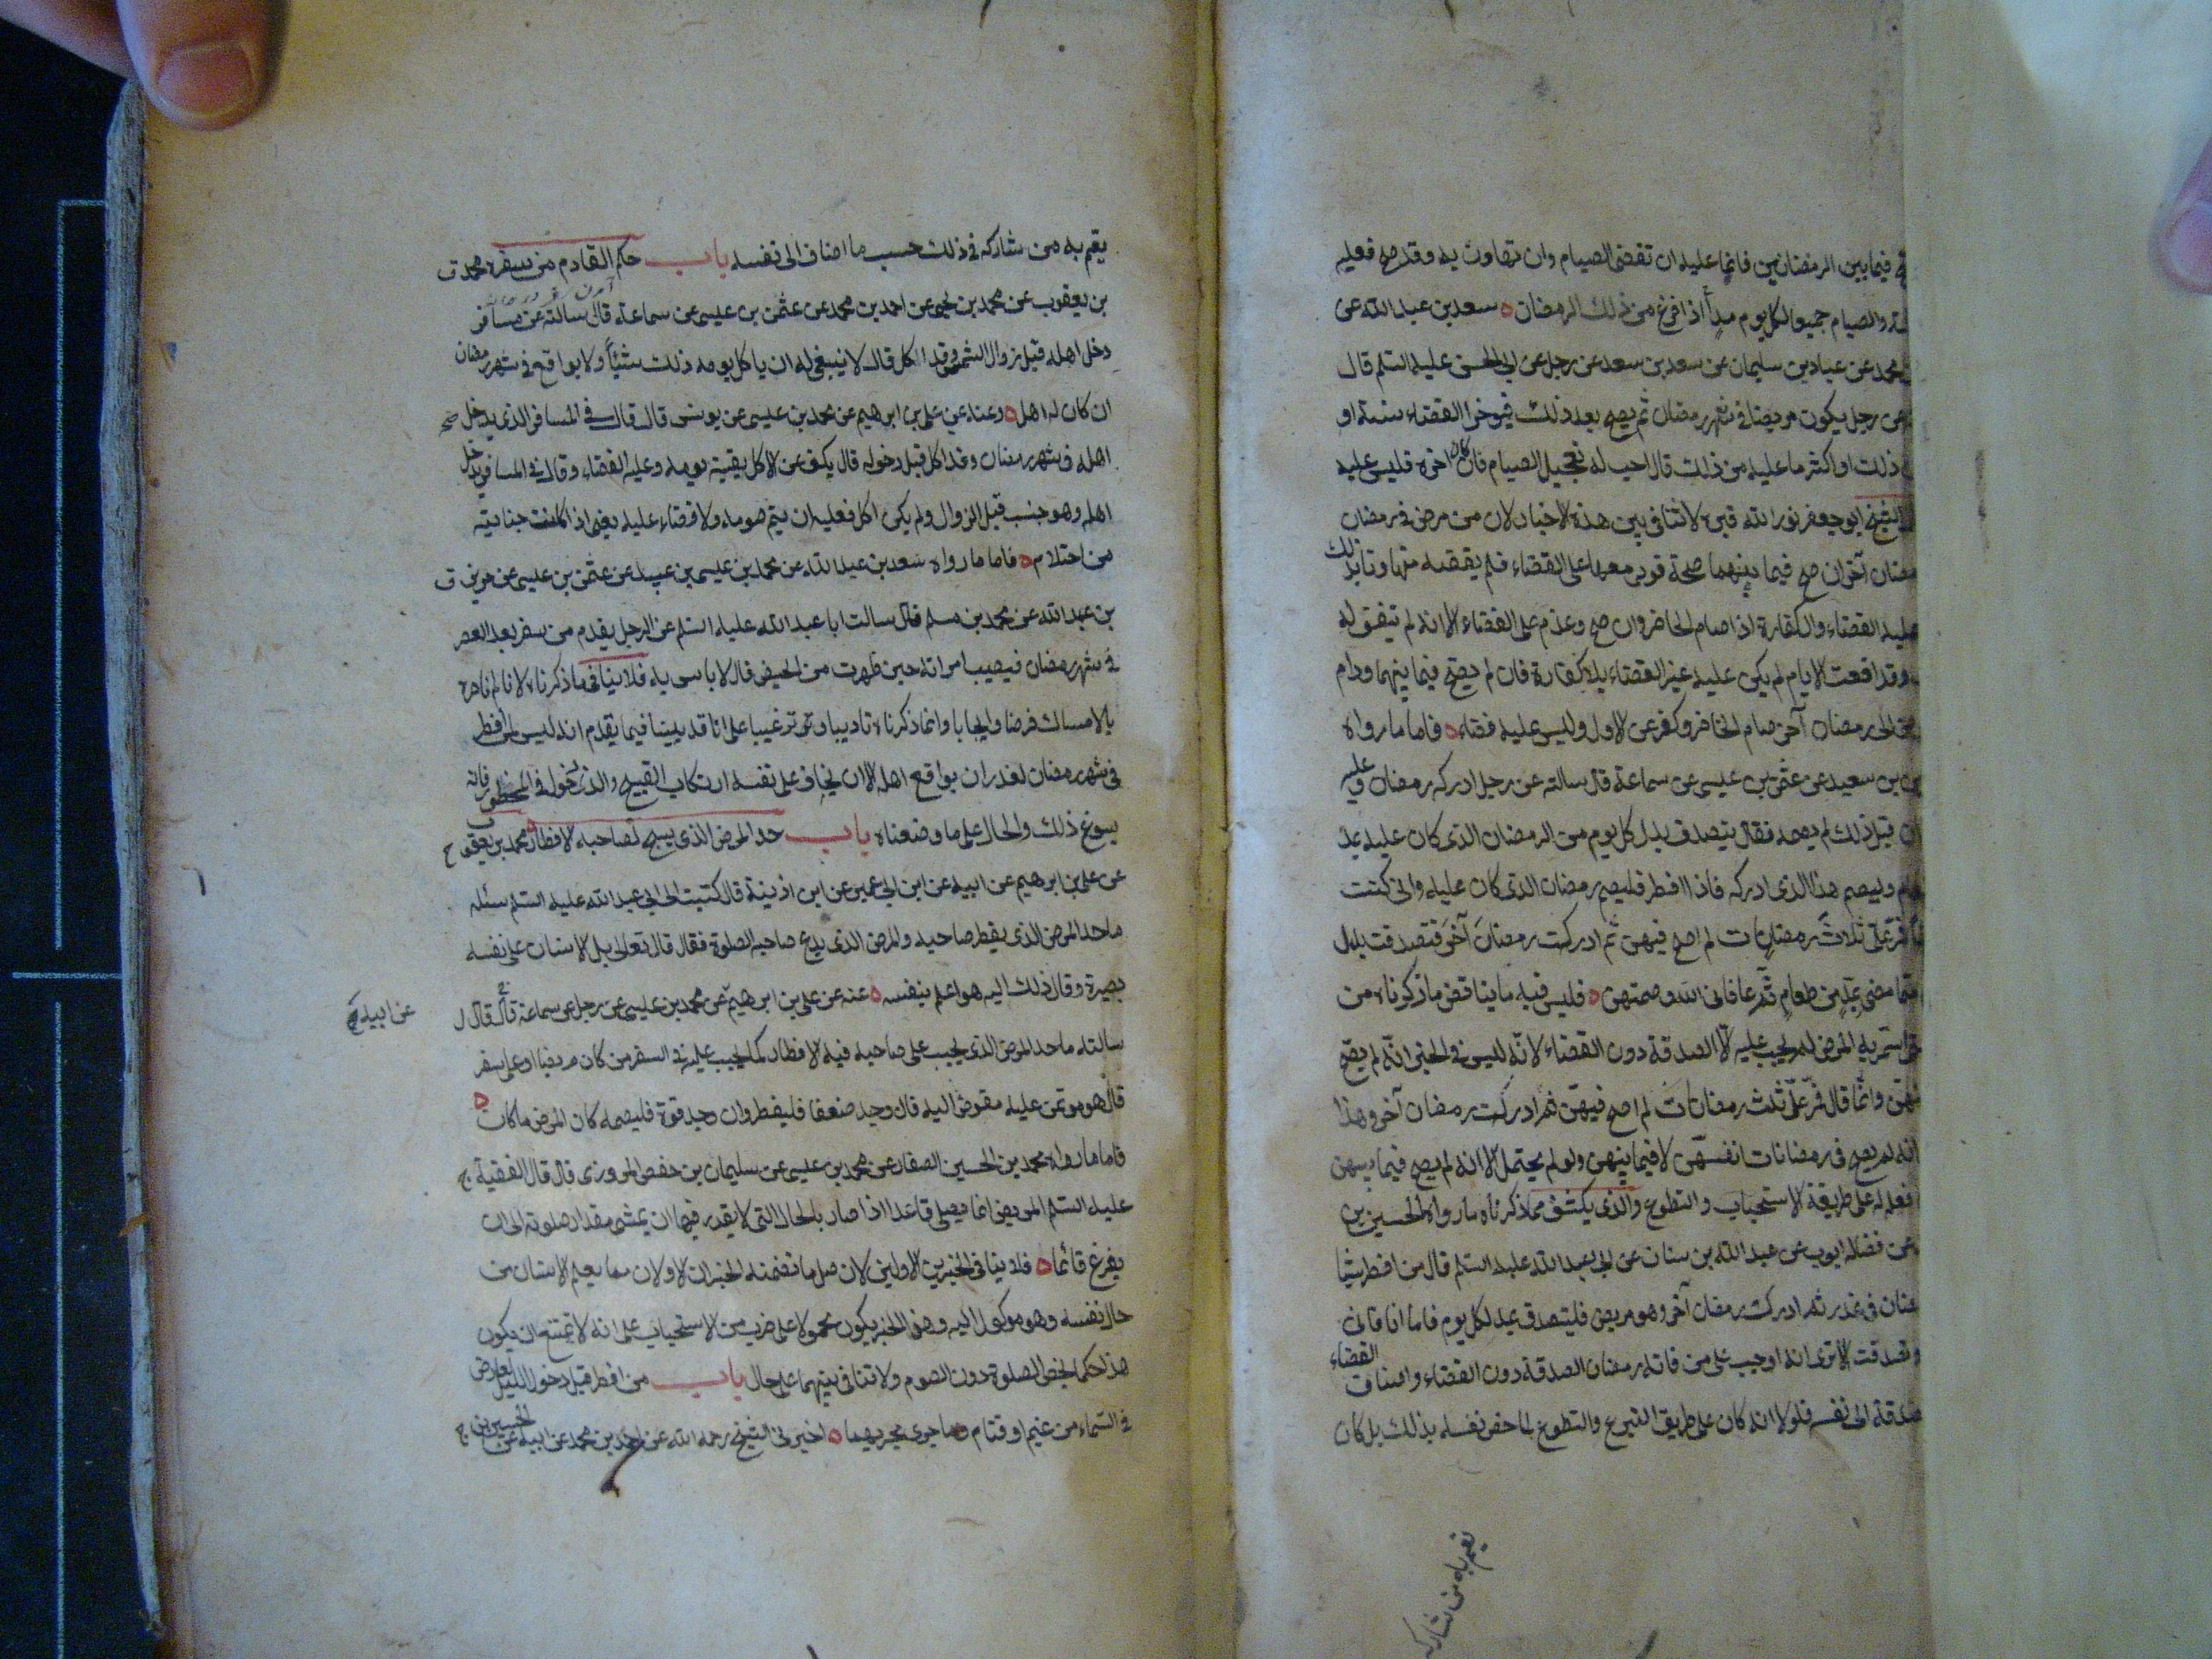 فيما بين الرمضانين فانما عليه ان تقضى الصيام وان تهاون به وقد صح فعليه
والصيام جميعا لكل يوم مدا اذا فرغ من ذلك الرمضان ه سعد بن عبد الله عن
محمد عن عباد بن سليمان عن سعد بن سعد عن رجل عن ابى الحسن عليه السلم قال
عن رجل يكون مريضا فى شهر رمضان ثم يصح بعد ذلك فيوخر القضاء سنة او
ذلك او اكثر ما عليه من ذلك قال احب له تعجيل الصيام فان كان اخره فليس عليه
الشيخ ابو جعفر نور الله قبره لا تنافى بين هذه الاخبار لان من مرض فى رمضان
آخر ان صح فيما بينهما صحة قوى معها على القضاء فلم يقضه متهاونا بذلك
عليه القضاء والكفارة اذا صام الحاضر وان صح وعزم على القضاء الا انه لم تتفق له
وقدافعت الايام لم يكن عليه غير القضاء بلا كفارة فان لم يصح فيما بينهما ودام
الى رمضان آخر صام الحاضر وكفر عن الاول وليس عليه قضاء ه فاما ما رواه
بن سعيد عن عثمن بن عيسى عن سماعة قال سالته عن رجل ادركه رمضان وعليه
قبل ذلك لم يصمه فقال يتصدق بدل كل يوم من الرمضان الذى كان عليه بمد
وليصم هذا الذى ادركه فاذا افطر فليصم رمضان الذى كان عليه وانى كنت
فمر على ثلاث رمضانات لم اصح فيهن ثم ادركت رمضان آخر فتصدقت بدل
مما مضى بمد من طعام ثم عافانى الله وصمتهن ه فليس فيه ما يناقض ما ذكرناه من
استمر به المرض لم يجب عليه الا الصدقة دون القضاء لانه ليس فى الخبر انه لم يصح
وانما قال فمر على ثلث رمضانات لم اصح فيهن ثم ادركت رمضان آخر وهذا
انه لم يصح فى رمضانات انفسهن لا فيما بينهن ولو لم يحتمل الا انه لم يصح فيما بينهن
فعله له على طريقة الاستحباب والتطوع والذى يكشف عما ذكرناه ما رواه الحسين بن
عن فضاله ايوب عن عبد الله بن سنان عن ابى عبد الله عليه السلم قال من افطر شيئا
فى عذر ثم ادرك رمضان آخر وهو مريض فليتصدق بمد لكل يوم فاما انا فانى
وتصدقت الا ترى انه اوجب على من فاته رمضان الصدقة دون القضاء واضاف القضاء
صدقة الى نفسه فلولا انه كان على طريق التبرع والتطوع لما خص نفسه بذلك بل كان
يقم به من شاركه
يقم به من شاركه فى ذلك حسب ما اضاف الى نفسه باب حكم القادم من سفره محمد
بن يعقوب عن محمد بن يحيى عن احمد بن محمد عن عثمن بن عيسى عن سماعة قال سالته عن مسافر
دخل اهله قبل زوال الشمس وقد اكل قال لا ينبغى له ان ياكل يومه ذلك شيئا ولا يواقع فى شهر رمضان
ان كان له اهل ه وعنه عن على بن ابرهيم عن محمد بن عيسى عن يونس قال قال فى المسافر الذى يدخل
اهله فى شهر رمضان وقد اكل قبل دخوله قال يكف عن الاكل بقية يومه وعليه القضاء وقال فى المسافر يدخل
اهله وهو جنب قبل الزوال ولم يكن اكل فعليه ان يتم صومه ولا قضاء عليه يعنى اذا كانت جنابته
من احتلام ه فاما ما رواه سعد بن عبد الله عن محمد بن عيسى بن عبيد عن عثمن بن عيسى عن حريز
بن عبد الله عن محمد بن مسلم قال سالت ابا عبد الله عليه السلم عن الرجل يقدم من سفر بعد العصر
فى شهر رمضان فيصيب امراته حين طهرت من الحيض قال لا باس به فلا ينافى ما ذكرناه لانا لم نامره
بالامساك فرضا وايجابا وانما ذكرناه تاديبا وترغيبا على انا قد بينا فيما يقدم انه ليس لمن افطر
فى شهر رمضان لعذر ان يواقع اهله الا ان يخاف على نفسه ارتكاب القبيح والدخول فى المحظور فانه
يسوغ ذلك والحال على ما وضعناه باب حد المرض الذى يبيح لصاحبه الافطار محمد بن يعقوب
عن على بن ابرهيم عن ابيه عن ابن ابى عمير عن ابن اذينة قال كتبت الى ابى عبد الله عليه السلم سئله
ما حد المرض الذى يفطر صاحبه والمرض الذى يدع صاحبه الصلوة فقال قال تعالى بل الانسان على نفسه
بصيرة وقال ذلك اليه هو اعلم بنفسه ه عنه عن على بن ابرهيم عن محمد بن عيسى عن رجل عن سماعة قال
عن ابيه
سالته ما حد المرض الذى يجب على صاحبه فيه الافطار كما يجب عليه فى السفر من كان مريضا او على سفر
قال هو موتمن عليه مفوض اليه فان وجد ضعفا فليفطر وان وجد قوة فليصمه كان المرض ما كان ه
فاما ما رواه محمد بن الحسين الصفار عن محمد بن عيسى عن سليمان بن حفص المروزى قال قال الفقيه
عليه السلم المريض انما يصلى قاعدا اذا صار بالحال التى لا يقدر فيها ان يمشى مقدار صلوته الى ان
يفرغ قائما ه فلا ينافى الخبرين الاولين لان اصل ما تضمنه الخبران الاولان مما يعلم الانسان من
حال نفسه وهو موكول اليه وهذا الخبر يكون محمولا على ضرب من الاستحباب على انه لا تمتنع ان يكون
هذا حكما يخص الصلوة دون الصوم ولا تنافى بينهما على حال باب من افطر قبل دخول الليل لعارض
فى السماء من غيم او قتام وما جرى مجريهما ه اخبرنى الشيخ رحمه الله عن احمد بن محمد عن ابيه عن الحسين بن